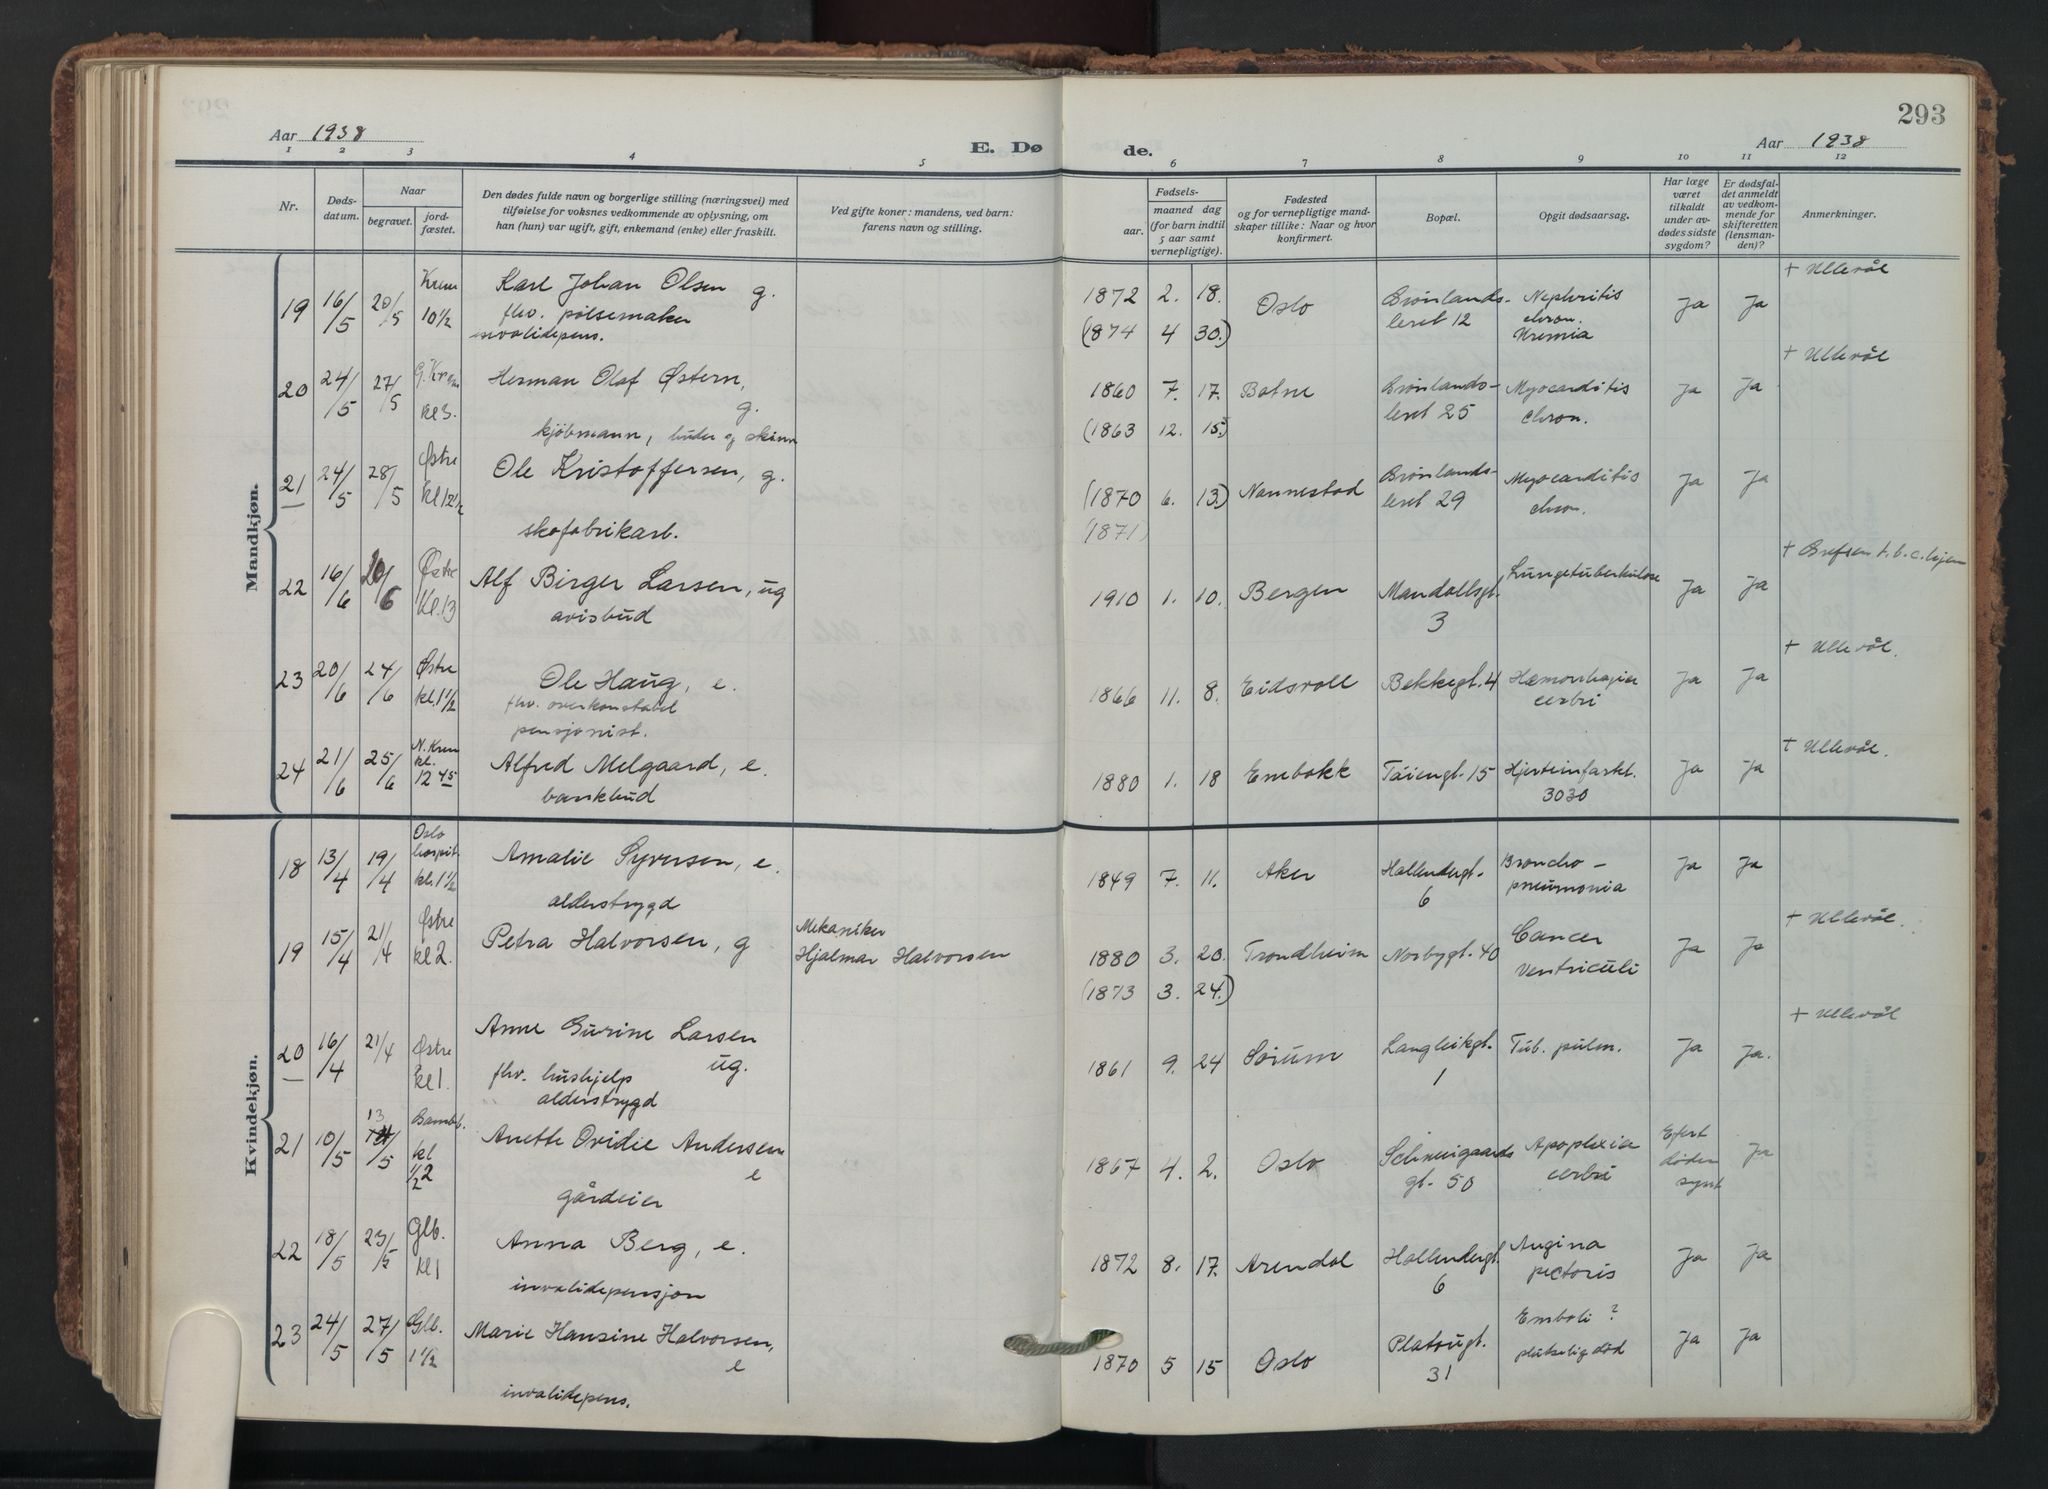 293
Aar 1938
E. Dø
de.
Aar 1938
1 2 3 4 5 6 7 8 9 10 11 12
Nr.
Døds-
datum.
Naar
begravet.
jord-
fæstet.
Den dødes fulde navn og borgerlige stilling (næringsvei) med
tilføielse for voksnes vedkommende av oplysning, om
han (hun) var ugift, gift, enkemand (enke) eller fraskilt.
Ved gifte koner: mandens, ved barn:
farens navn og stilling.
Fødsels-
aar.
maaned dag
(for barn indtil
5 aar samt
vernepligtige).
Fødested
og for vernepligtige mand-
skaper tillike: Naar og hvor
konfirmert.
Bopæl.
Opgit dødsaarsag.
Har læge
været
tilkaldt
under av-
dødes sidste
sygdom?
Er dødsfal-
det anmeldt
av vedkom-
mende for
skifteretten
(lensman-
den)?
Anmerkninger.
Mandkjøn.
+ Ullevål
19 16/5 20/5 Krem 10½ Karl Johan Olsen g. 1872 2. 18. Oslo Grønlands- Nephritis Ja Ja
flv. pølsemaker leret 12 chron.
invalidepens. (1874 4 30.) Uremia
+ Ullevål
20 24/5 27/5 G. Krem kl 3. Herman Olaf Østern, g. 1860 7. 17. Botne Grønlands- Myocarditis Ja Ja
leret 25 chron.
kjöbmann, huder og skinn (1863 12. 15.)
21 24/5 28/5 Østre kl 12½ Ole Kristoffersen, g. (1870 6. 13.) Nannestad Grønlands- Myocarditis Ja Ja
leret 29 chron.
skofabrikarb. (1871)
+ Grefsen t.b.c. hjem
22 16/6 20/6 Østre kl. 13 Alf Birger Larsen, ug 1910 1. 10. Bergen Mandallsgt. Lungetuberkulose Ja Ja
avisbud 3
+ Ullevål.
23 20/6 24/6 Østre kl. 1½ Ole Haug, e. 1866 11. 8. Eidsvoll Bakkegt. 4 Hæmorrhagia Ja Ja
flv. overkonstabel cerbri
pensjonist.
+ Ullevål.
24 21/6 25/6 N. Krem kl. 12 45 Alfred Melgaard, e. 1880 1. 18 Enebakk Töiengt. 15 Hjerteinfarkt. Ja Ja
bankbud 3030
Kvindekjøn.
18 13/4 19/4 Oslo hospit. kl. 1½ Amalie Syversen, e. 1849 7. 11. Aker Hallendergt. Broncho- Ja Ja
alderstrygd 6 pneumonia
+ Ullevål.
19 15/4 21/4 Østre kl 2. Petra Halvorsen, g Mekaniker 1880 3. 20. Trondheim Norbygt. 40 Cancer Ja Ja
Hjalmar Halvorsen ventriculi
(1873 3. 24.)
+ Ullevål
20 16/4 21/4 Østre kl 1. Anne Gurine Larsen ug. 1861 9. 24 Sörum Langleikgt. Tub. pulm. Ja Ja.
flv. hushjelp 1
" alderstrygd
21 10/5 13/5 kl ½2 Anette Ovidie Andersen e 1867 4. 2. Oslo Schweigaards Apoplexia Efter Ja
gt. 50 cerbri döden
gårdeier synt
22 18/5 23/5 Glb. kl 1 Anna Berg, e. 1872 8. 17. Arendal Hallendergt. Angina Ja Ja
invalidepensjon 6 pectoris
23 24/5 27/5 Glb. 1½ Marie Hansine Halvorsen, e 1870 5 15 Oslo Platougt. Emboli? Ja Ja
31 plutselig död
invalidepens.